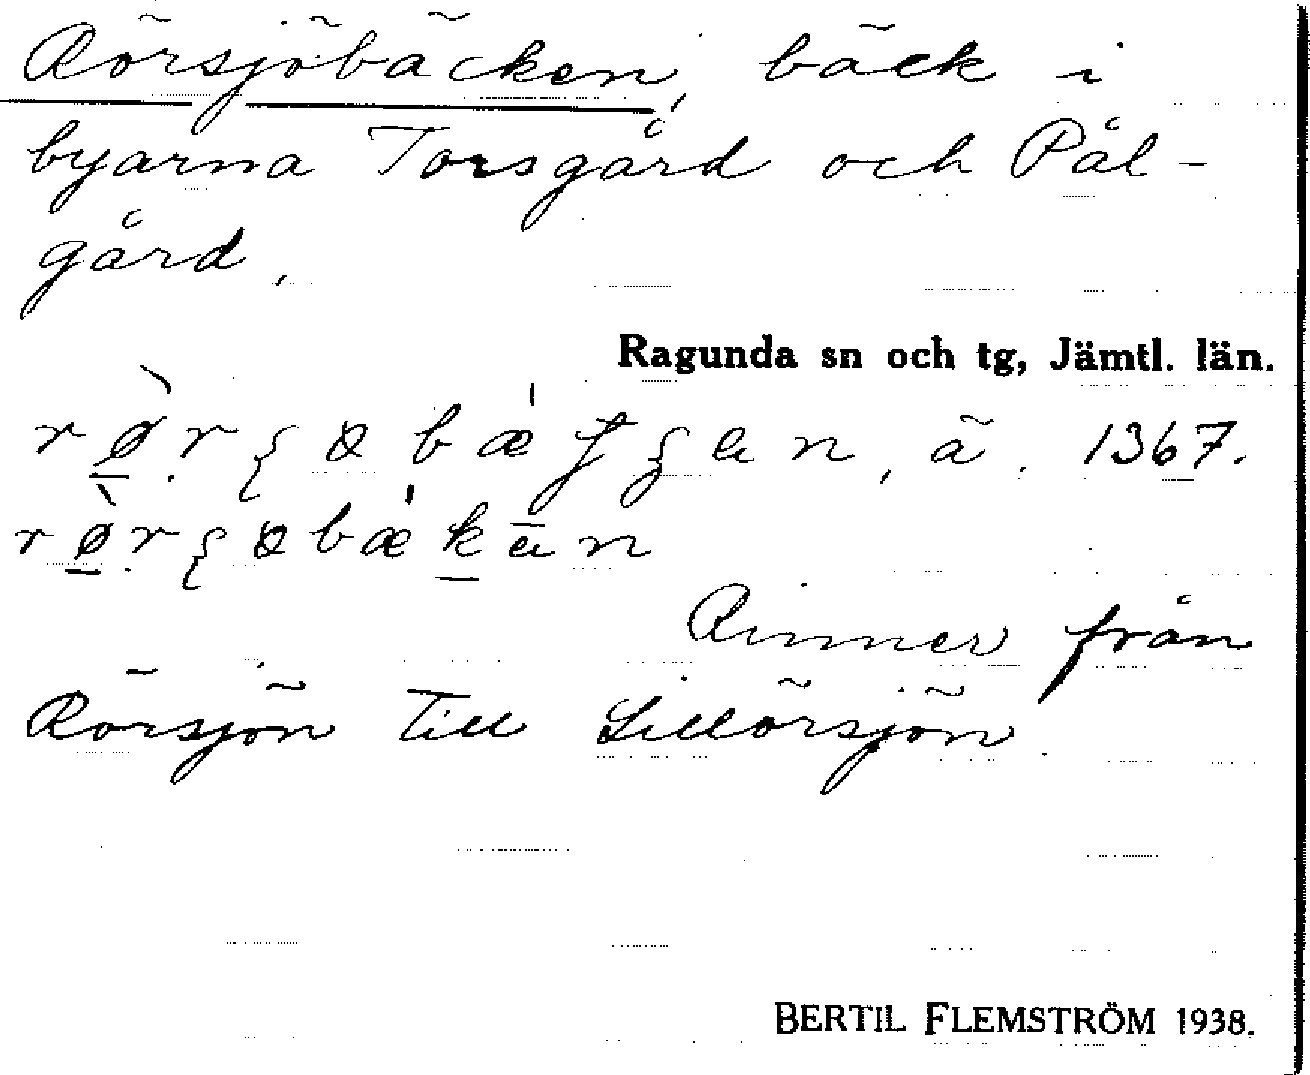 Rörsjöbäcken, bäck i
byarna Torsgård och Pål-
gård.
Ragunda sn och tg, Jämtl. län.
ä. 1367.
Rinner från
Rörsjön till Lillörsjön.
BERTIL FLEMSTRÖM 1938.